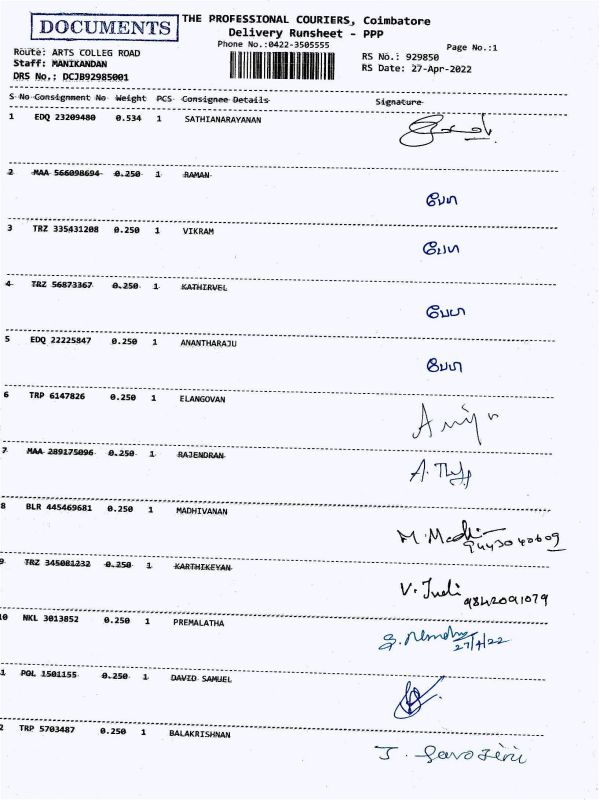 DOCUMENTS
THE PROFESSIONAL COURIERS, Coimbatore
Delivery Runsheet - PPP
Phone No.:0422-3505555
Page No.:1
Route: ARTS COLLEG ROAD
RS No.: 929850
Staff: MANIKANDAN
RS Date: 27-Apr-2022
DRS No.: DCJB92985001
S No Consignment No Weight PCS Consignee Details Signature
1 EDQ 23209480 0.534 1 SATHIANARAYANAN
2 MAA 566098694 0.250 1 RAMAN
3 TRZ 335431208 0.250 1 VIKRAM
4 TRZ 56873367 0.250 1 KATHIRVEL
5 EDQ 22225847 0.250 1 ANANTHARAJU
6 TRP 6147826 0.250 1 ELANGOVAN
7 MAA 289175096 0.250 1 RAJENDRAN
8 BLR 445469681 0.250 1 MADHIVANAN
M. Madhi
9443040609
9 TRZ 345081232 0.250 1 KARTHIKEYAN
V. Indi
9842091079
10 NKL 3013852 0.250 1 PREMALATHA
27/4/22
1 POL 1501155 0.250 1 DAVID SAMUEL
2 TRP 5703487 0.250 1 BALAKRISHNAN